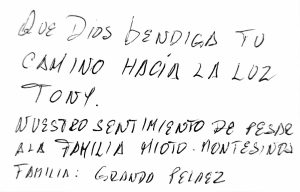 QUE DIOS bENDIGA TU
CAMINO HACIA LA LUZ
TONY.
NUESTRO SENTIMIENTO DE PESAR
A LA FAMILIA MIOTO-MONTESINOS
FAMILIA: GRANDA PELAEZ